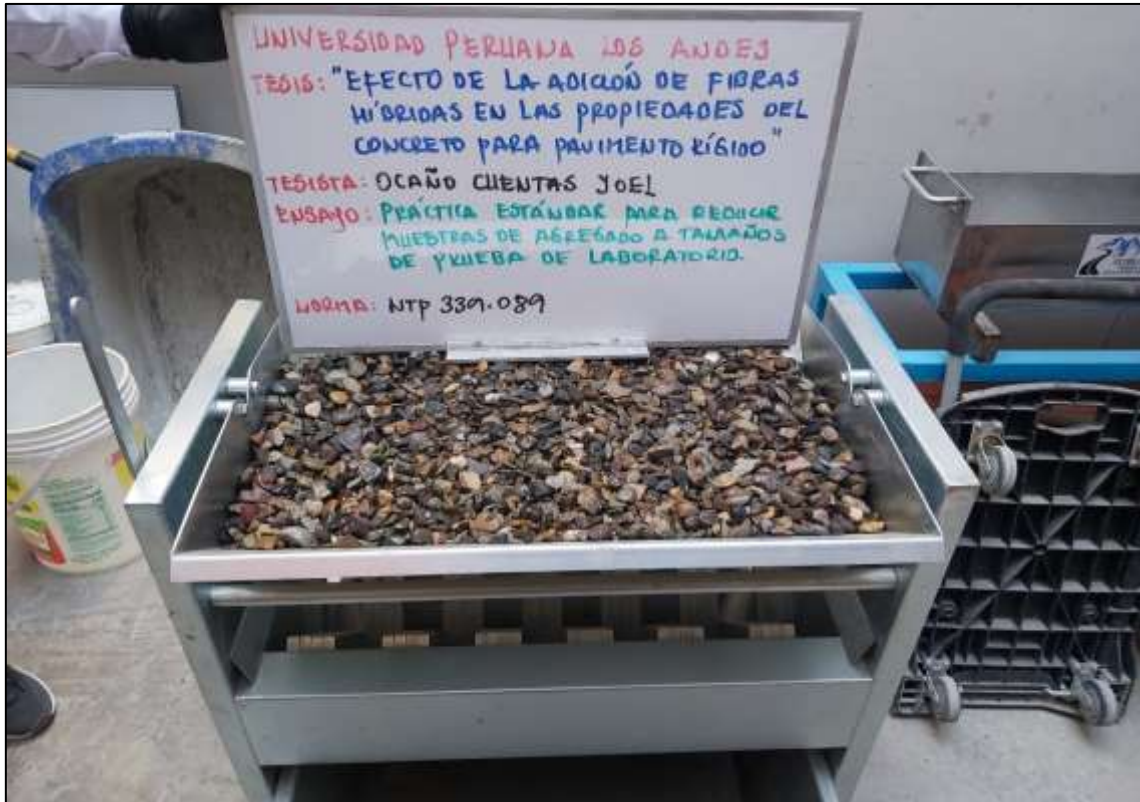 UNIVERSIDAD PERUANA LOS ANDES
TESIS: "EFECTO DE LA ADICIÓN DE FIBRAS
HÍBRIDAS EN LAS PROPIEDADES DEL
CONCRETO PARA PAVIMENTO RÍGIDO"
TESISTA: OCAÑO CUENTAS YOEL
ENSAYO: PRÁCTICA ESTÁNDAR PARA REDUCIR
MUESTRAS DE AGREGADO A TAMAÑOS
DE PRUEBA DE LABORATORIO.
NORMA: NTP 339.089